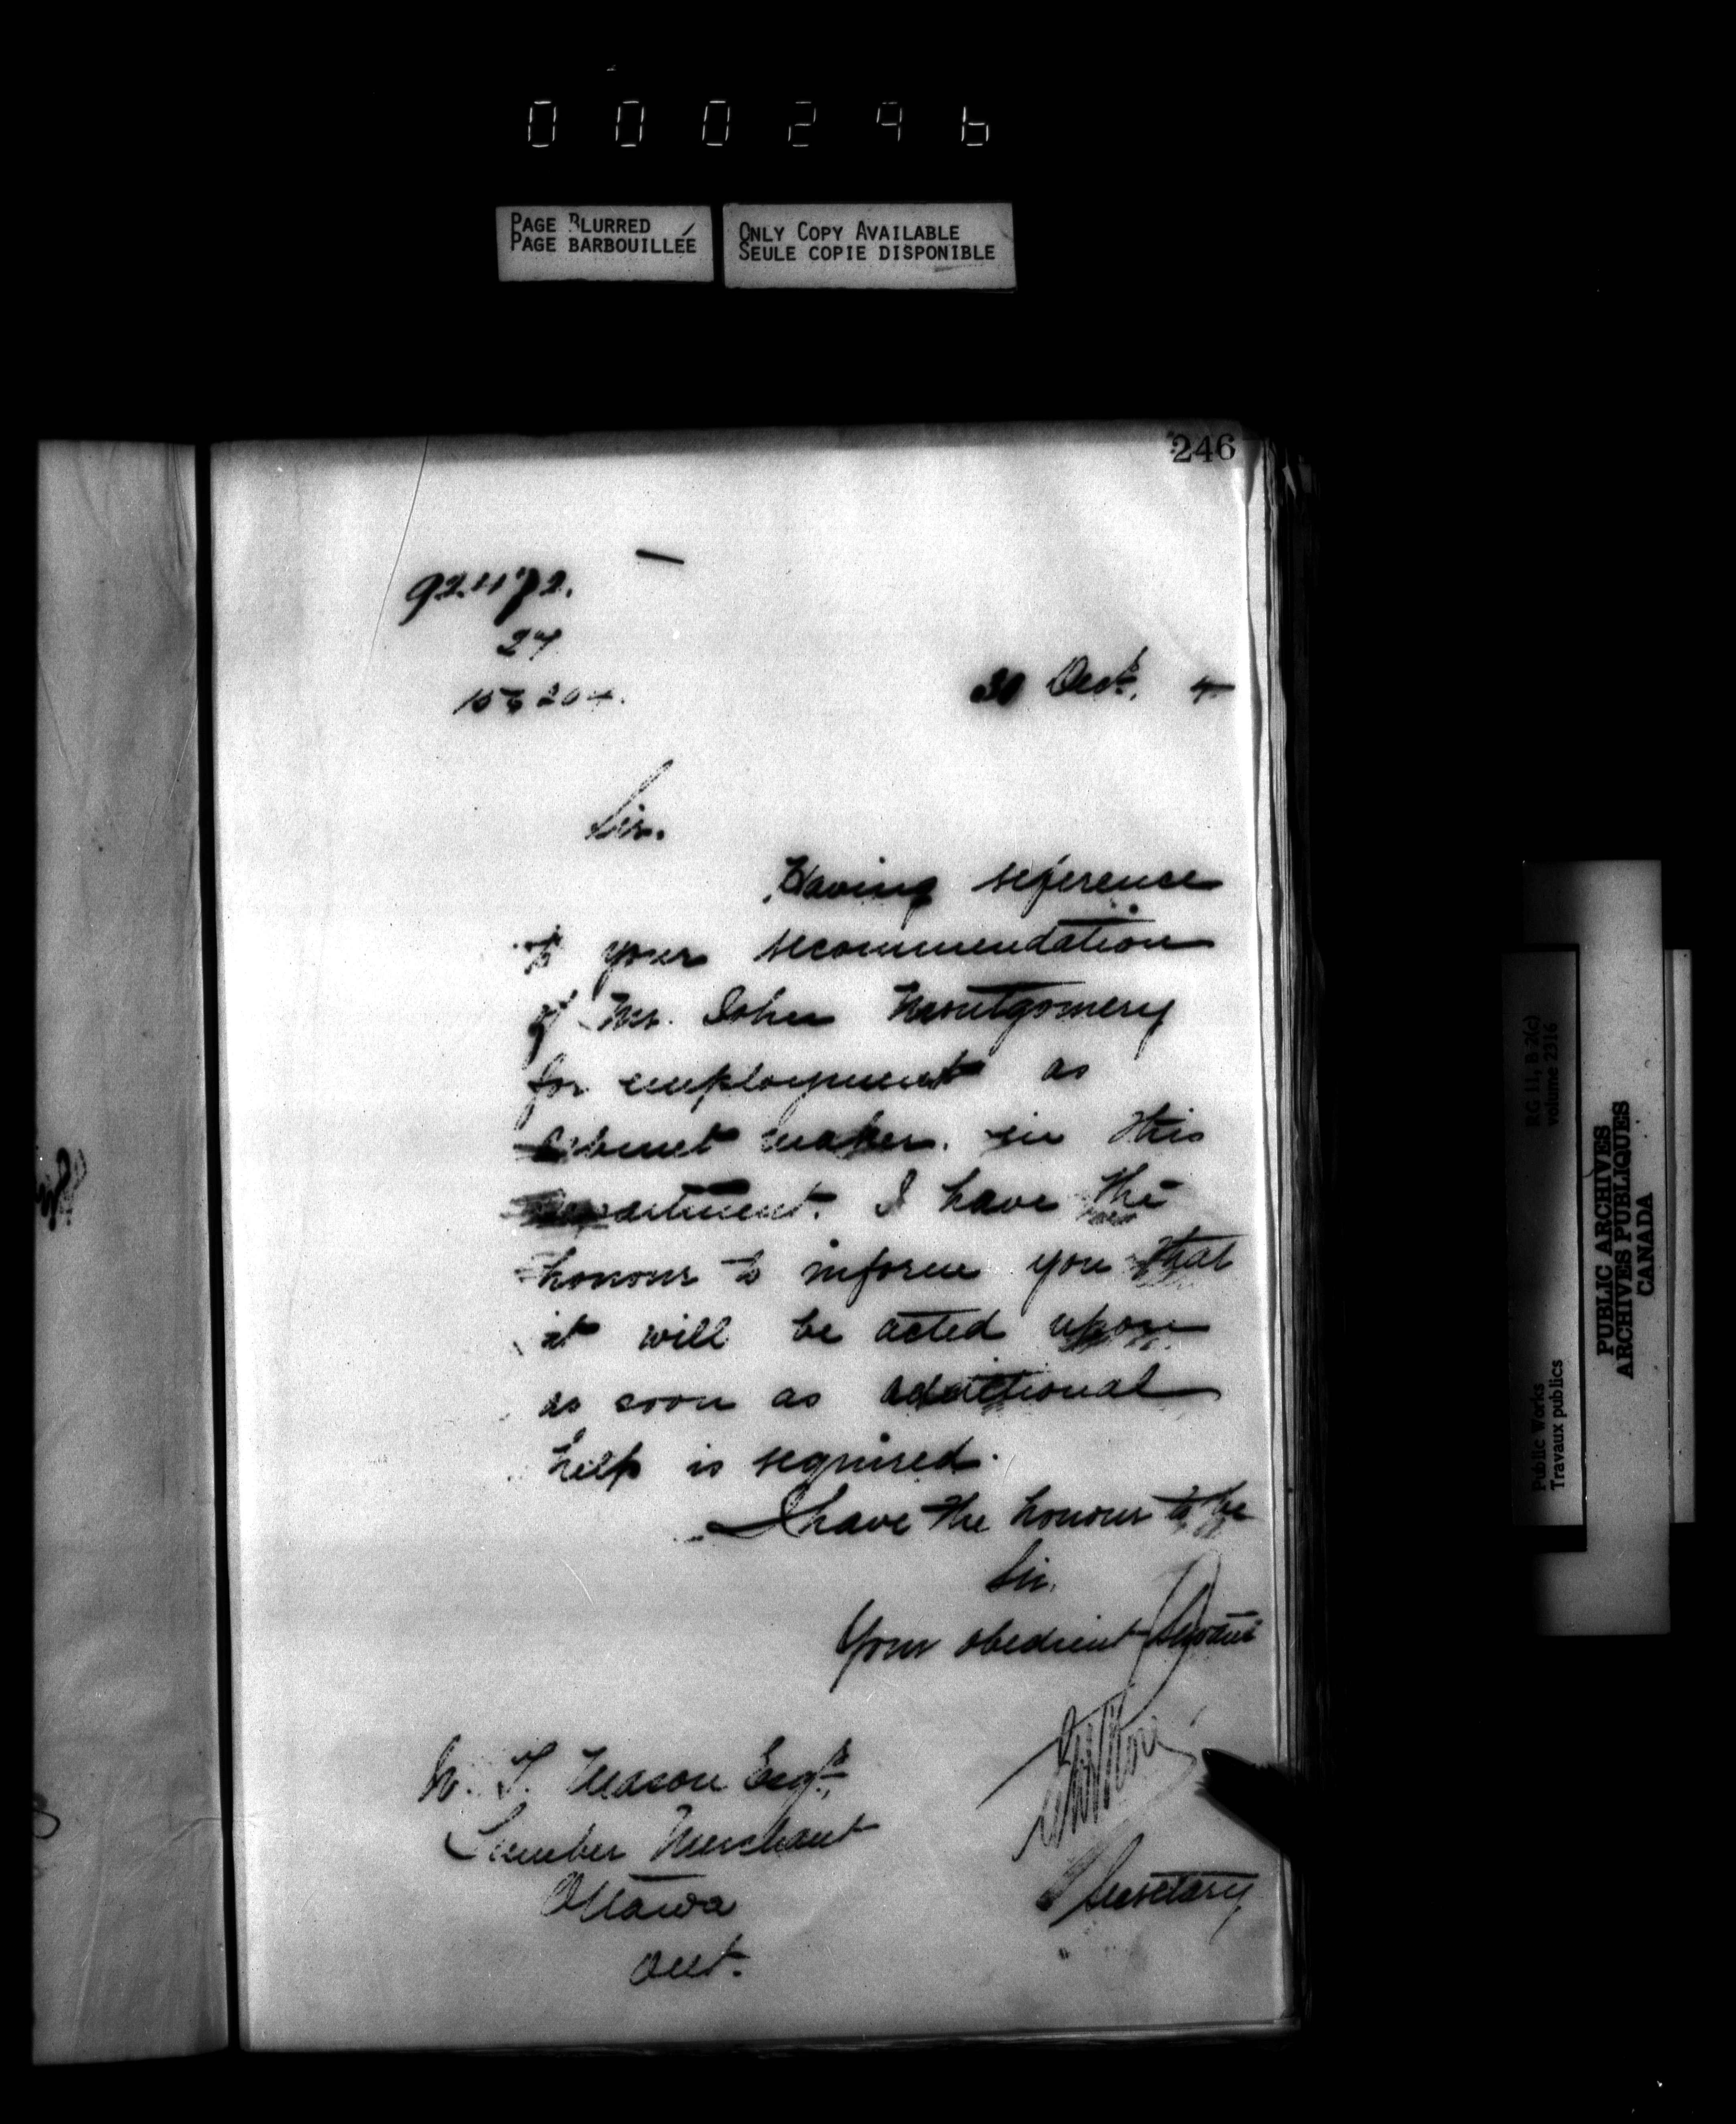 000296
PAGE BLURRED
PAGE BARBOUILLÉE
ONLY COPY AVAILABLE
SEULE COPIE DISPONIBLE
246
92472.
27
30 Dec^r. 4
Sir.
Having reference
to your recommendation
of Mr. John Montgomery
for employment as
Cabinet maker. in this
Department. I have the
honour to inform you that
it will be acted upon
as soon as additional
help is required.
I have the honour to be
Sir.
Your obedient Servant
W. T. Mason Esq^r.
Lumber Merchant
Ottawa
Ont.
Secretary
RG 11, B 2(c)
volume 2316
Public Works
Travaux publics
PUBLIC ARCHIVES
ARCHIVES PUBLIQUES
CANADA